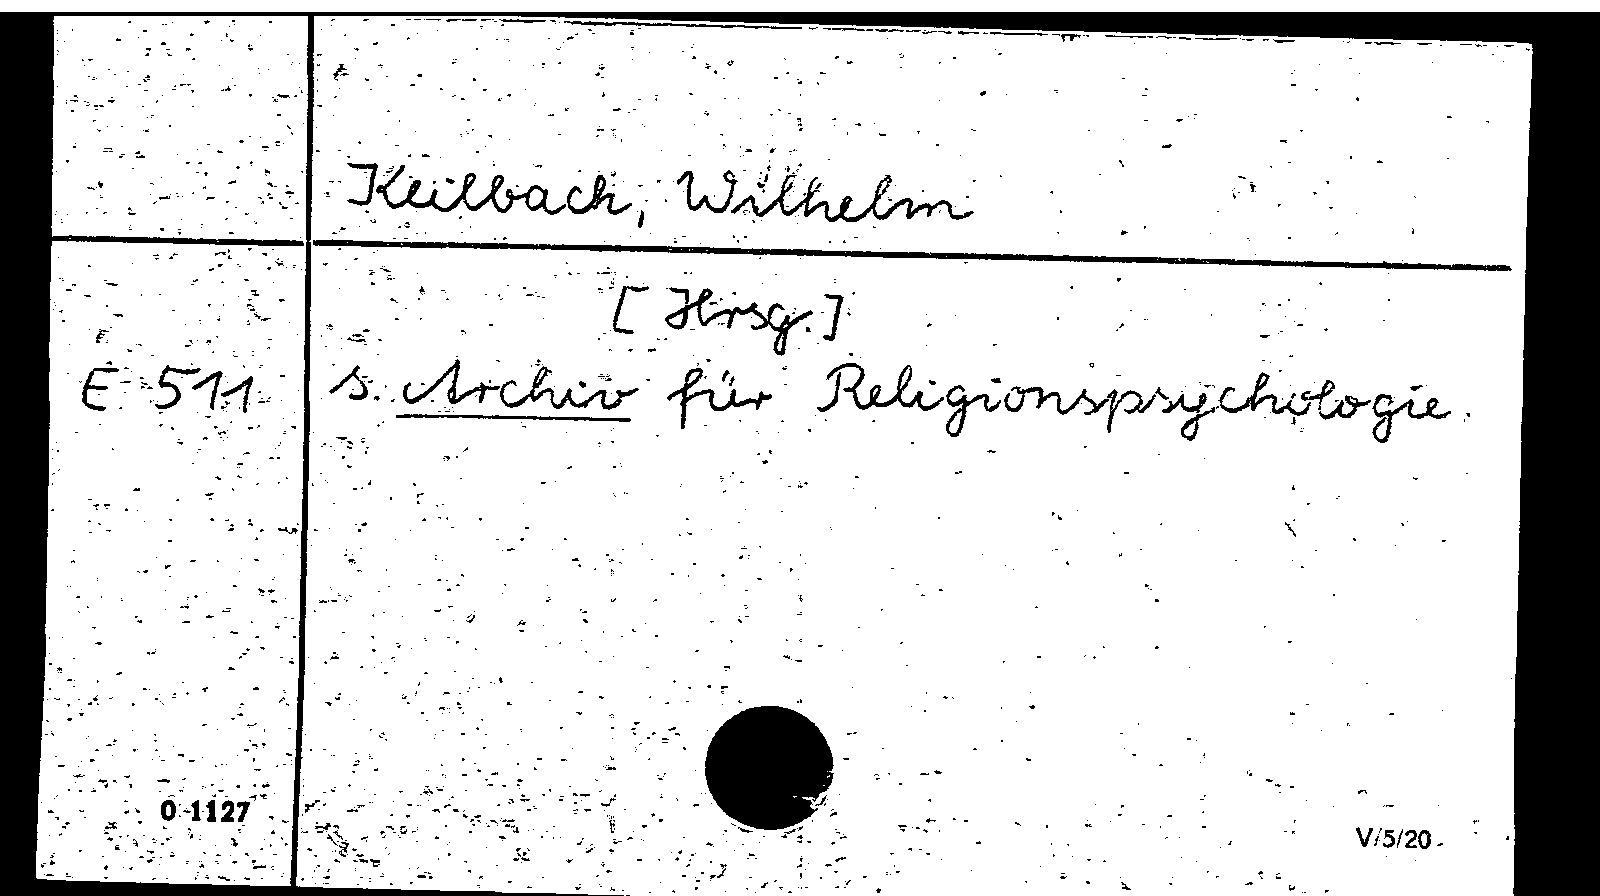 Keilbach, Wilhelm
[Hrsg.]
E 511 s. Archiv für Religionspsychologie.
0 1127
V/5/20